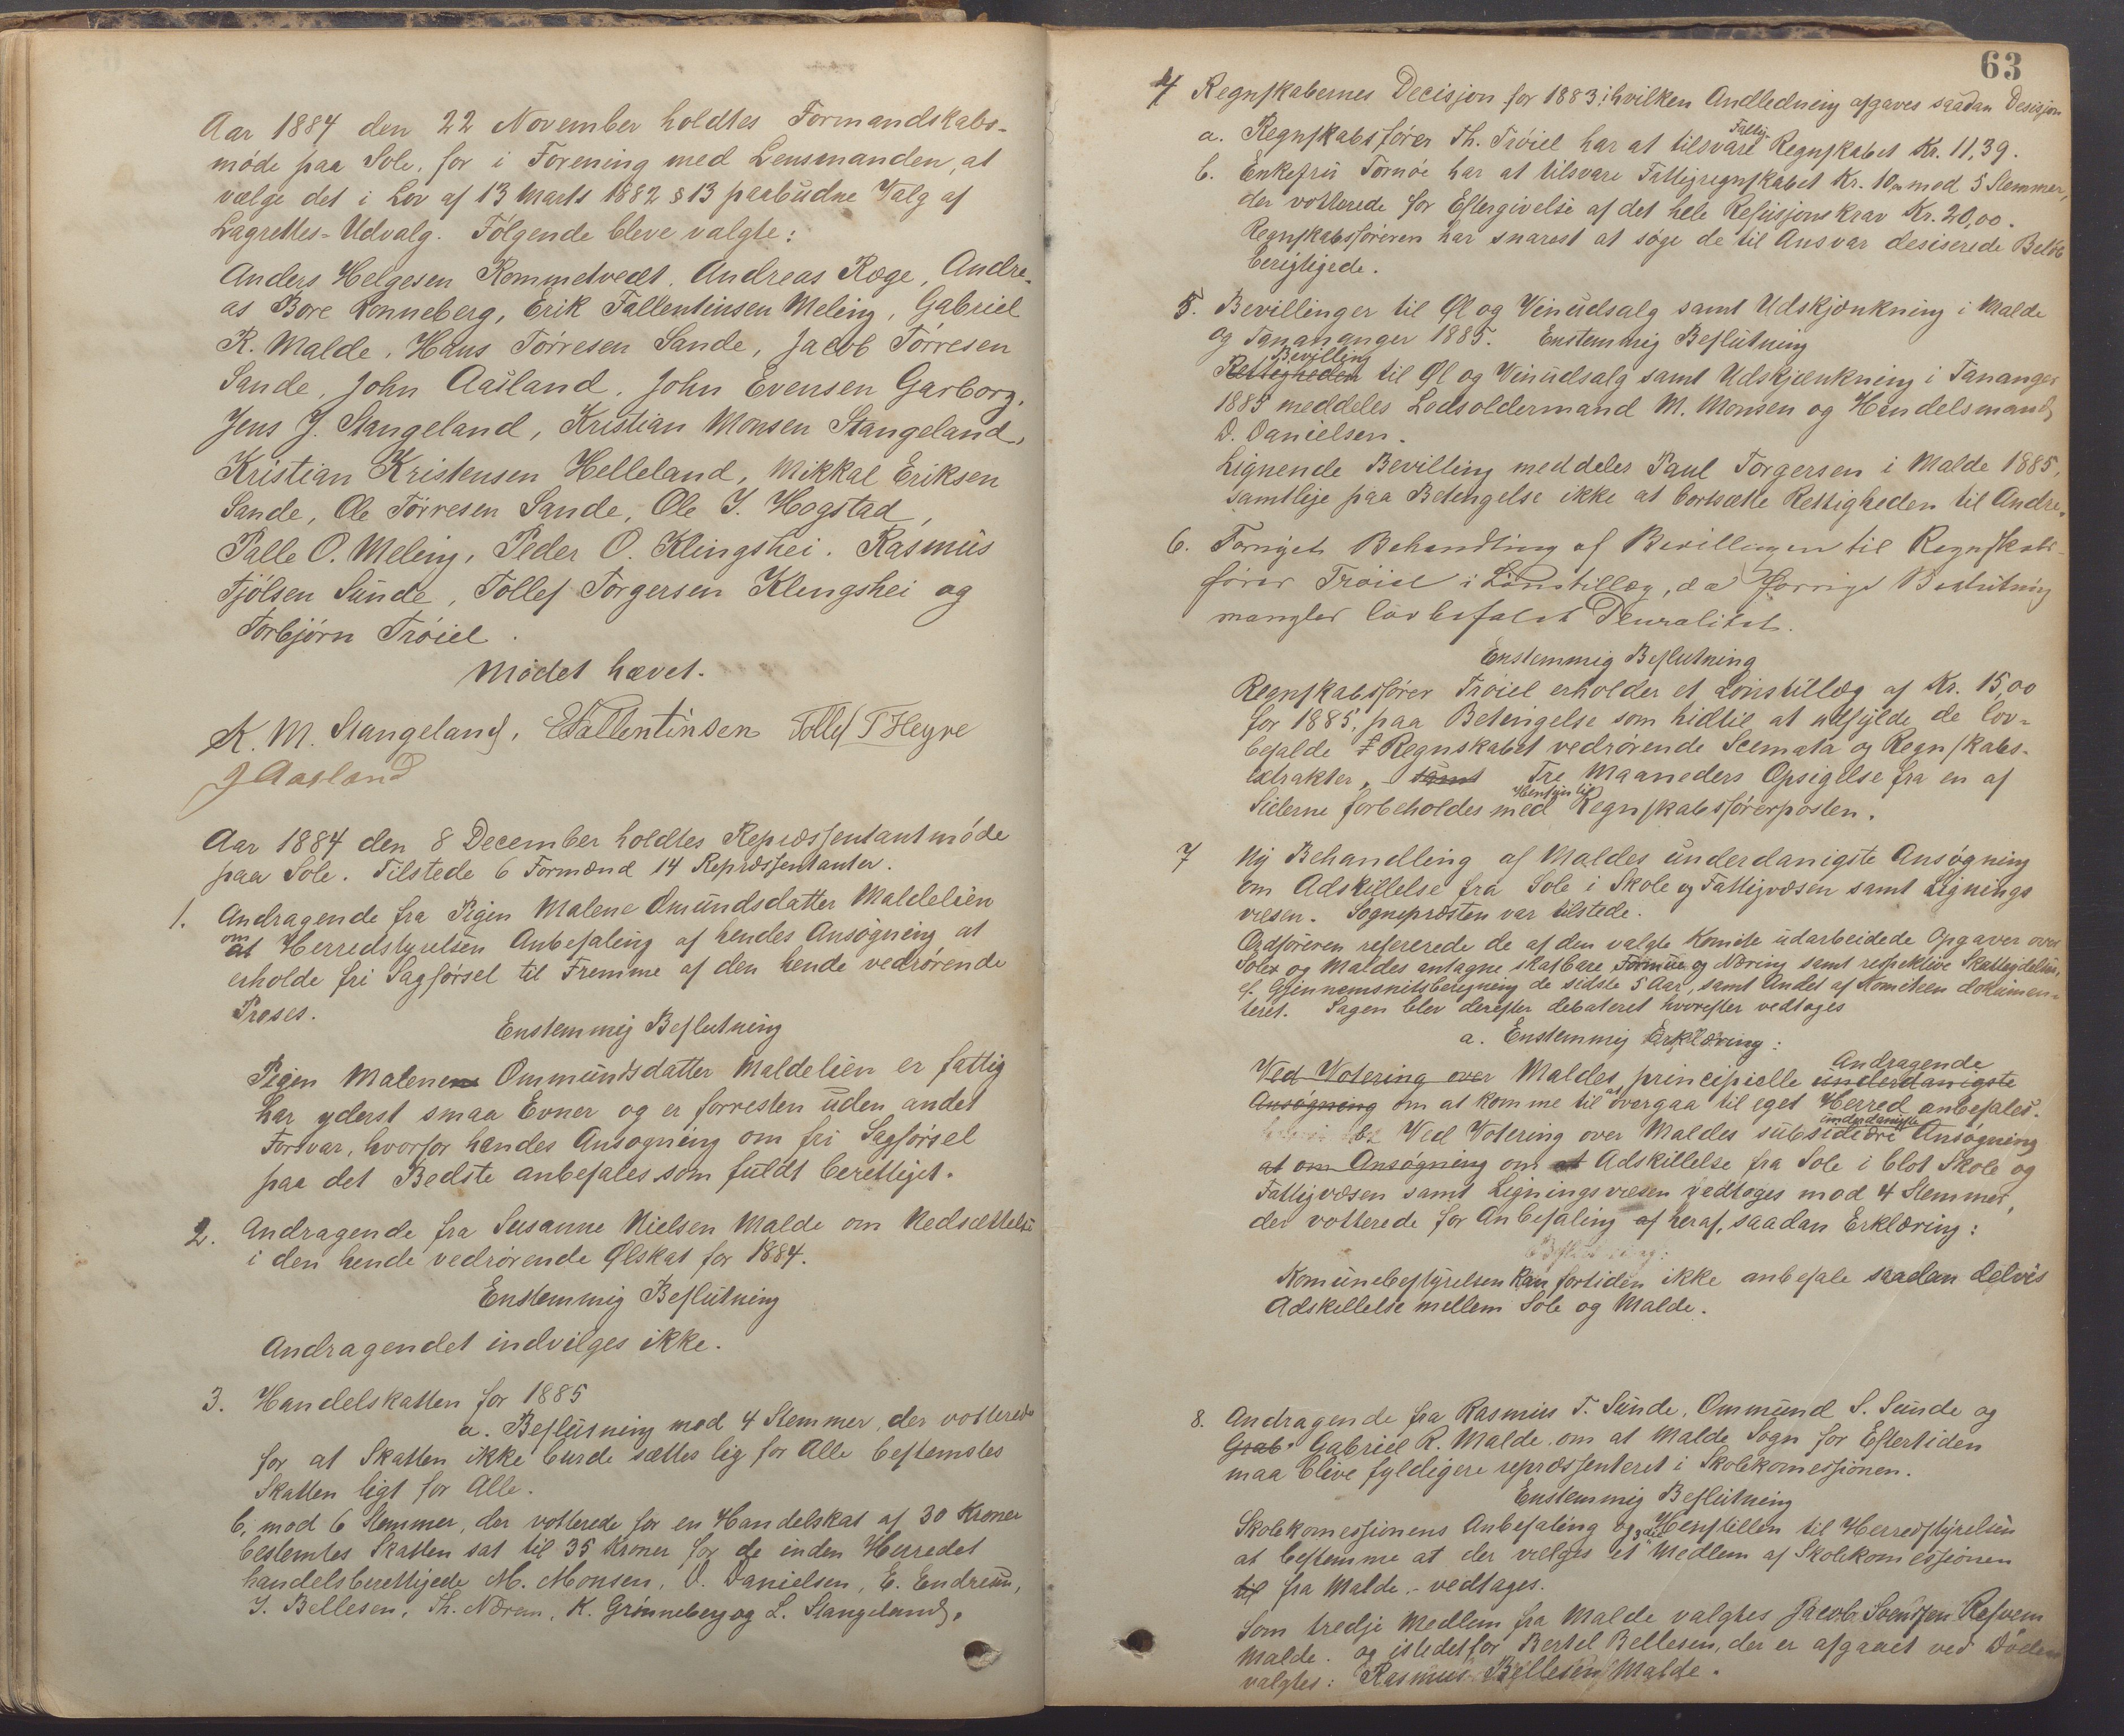 Aar 1884 den 22 November holdtes Formandskabs-
møde paa Sole, for i Forening med Lensmanden, at
vælge det i Lov af 13 Marts 1882 § 13 paabudne Valg af
Lagrettes-Udvalg. Følgende bleve valgte:
Anders Helgesen Rommetvedt, Andreas Røge, Andre-
as Bore Rønneberg, Erik Fallentinsen Meling, Gabriel
R. Malde, Hans Tørresen Sande, Jacob Tørresen
Sande, John Aasland, John Evensen Garborg,
Jens J. Stangeland, Kristian Monsen Stangeland,
Kristian Kristensen Helleland, Mikkal Eriksen
Sande, Ole Tørresen Sande, Ole I. Hogstad,
Palle O. Meling, Peder O. Klingshei, Rasmus
Tjølsen Sunde, Tollef Torgersen Klengshei og
Torbjørn Trøiel.
Mødet hævet.
K. M. Stangeland, E Fallentinsen Tollef T Heyre
J Aasland
Aar 1884 den 8 December holdtes Repræssentantmøde
paa Sole. Tilstede 6 Formænd 14 Repræssentanter.
1. Andragende fra Pigen Malene Omundsdatter Maldeleen
om
at Herredstyrelsen Anbefaling af hendes Ansøgning at
erholde fri Sagførsel til Fremme af den hende vedrørende
Proses.
Enstemmig Beslutning
Pigen Malene Ommundsdatter Maldeleen er fattig
har yderst smaa Evner og er forresten uden andet
Forsvar, hvorfor hendes Ansøgning om fri Sagførsel
paa det Bedste anbefales som fuldt berettiget.
2. Andragende fra Susanne Nielsen Malde om Nedsættelse
i den hende vedrørende Ølskat for 1884.
Enstemmig Beslutning
Andragendet indvilges ikke.
3. Handelskatten for 1885
a. Beslutning mod 4 Stemmer, der votterede
for at Skatten ikke burde sættes lig for Alle bestemtes
Skatten ligt for Alle.
b, mod 6 Stemmer, der votterede for en Handelskat af 30 Kroner
bestemtes Skatten sat til 35 Kroner for de inden Herredet
handelsberettigede M. Monsen, D. Danielsen, E. Endresen,
I. Bellesen, Th. Næren, K. Grønneberg og L. Stangeland.
63
4 Regnskabernes Decisjon for 1883, i hvilken Andledning afgaves saadan Desisjon
Fattig
a. Regnskabsfører Th. Trøiel har at tilsvare Regnskabet Kr. 11,39.
b. Enkefru Tornøe har at tilsvare Fattigregnskabet Kr. 10,00 mod 5 Stemmer,
der votterede for Eftergivelse af det hele Refusjonskrav Kr. 20,00.
Regnskabsføreren har snarest at søge de til Ansvar desiserede Beløb
berigtigede.
5. Bevillinger til Øl og Vinudsalg samt Udskjænkning i Malde
og Tanananger 1885. Enstemmig Beslutning
Bevilling
Rettigheden til Øl og Vinudsalg samt Udskjænkning i Tananger
1885 meddeles Lodsoldermand M. Monsen og Handelsmand
D. Danielsen.
Lignende Bevilling meddeles Paul Torgersen i Malde 1885,
samtlige paa Betengelse ikke at bortsætte Rettigheden til Andre.
6. Fornyet Behandling af Bevillingen til Regnskabs-
fører Trøiel i Lønstillæg, da forrige Beslutning
mangler lovbefalet Pluralitet.
Enstemmig Beslutning
Regnskabsfører Trøiel erholder et Lønstillæg af Kr. 15,00
for 1885, paa Betengelse som hidtil at udfylde de lov-
befalde Regnskabet vedrørende Scemata og Regnskabs-
extrakter, - samt Tre Maaneders Opsigelse fra en af
Hensyn til
Siderne forbeholdes med Regnskabsførerposten.
7 Ny Behandling af Maldes underdanigste Ansøgning
om Adskillelse fra Sole i Skole og Fattigvæsen samt Lignings
væsen. Sognepræsten var tilstede.
Ordføreren refererede de af den valgte Komite udarbeidede Opgaver over
Soles og Maldes antagne skatbare Formue og Næring samt respektive Skatteydelser,
ef. Gjennemsnitsberegning de sidste 5 Aar, samt Andet af Komiteen dokumen-
teret. Sagen blev derefter debateret hvorefter vedtoges
a. Enstemmig Erklæring:
Andragende
Ved Votering over Maldes principielle underdanigste
Ansøgning om at komme til at overgaa til eget Herred anbefales.
underdanigste
b. Ved Votering over Maldes subsidiære Ansøgning
at om Ansøgning om at Adskillelse fra Sole i blot Skole og
Fattigvæsen samt Ligningsvæsen vedtoges mod 4 Stemmer,
der votterede for Anbefaling af heraf, saadan Erklæring:
Komunebestyrelsen kan fortiden ikke anbefale saadan delvis
Adskillelse mellem Sole og Malde.
8. Andragende fra Rasmus T. Sunde, Ommund S. Sunde og
Gab. Gabriel R. Malde om at Malde Sogn for Eftertiden
maa blive fyldigere repræssenteret i Skolekomessjonen.
Enstemmig Beslutning
Skolekomessjonens Anbefaling og Henstillen til Herredstyrelsen
at bestemme at der vælges et Medlem af Skolekomessjonen
til fra Malde. - vedtages.
Som tredje Medlem fra Malde valgtes Jacob Svendsen Refvem
Malde. og istedetfor Bertel Bellesen, der er afgaaet ved Døden
valgtes: Rasmus Bellesen Malde.